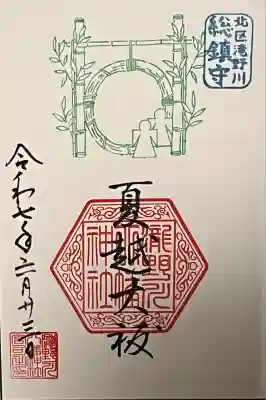 北区滝野川
総鎮守
夏越大祓
瀧野川
神社
令和七年六月廿三日